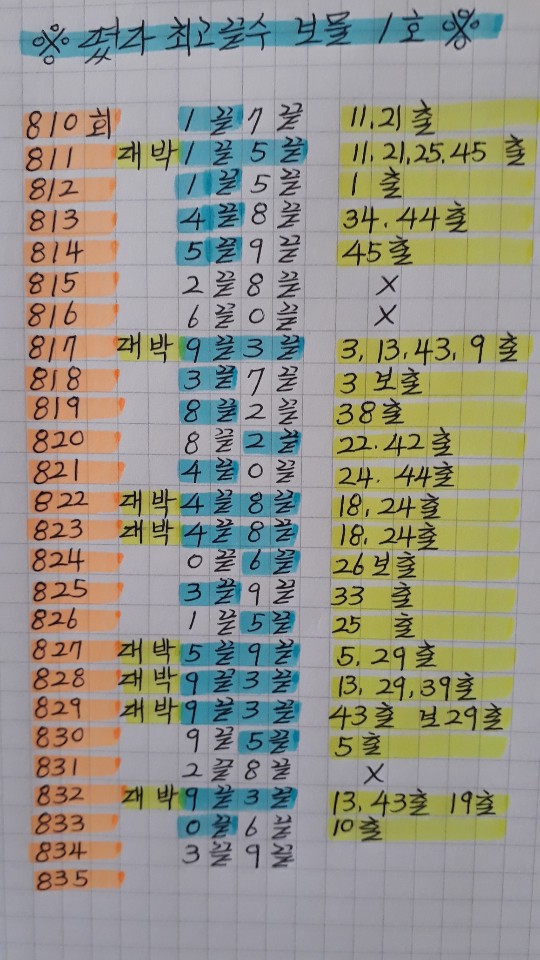 ※ 떴다 최고끝수 보물 1호 ※
810회 1끝 7끝 11.21출
811 대박 1끝 5끝 11.21.25.45 출
812 1끝 5끝 1 출
813 4끝 8끝 34.44출
814 5끝 9끝 45출
815 2끝 8끝 X
816 6끝 0끝 X
817 대박 9끝 3끝 3, 13, 43, 9 출
818 3끝 7끝 3 보출
819 8끝 2끝 38출
820 8끝 2끝 22.42출
821 4끝 0끝 24. 44출
822 대박 4끝 8끝 18, 24출
823 대박 4끝 8끝 18, 24출
824 0끝 6끝 26보출
825 3끝 9끝 33 출
826 1끝 5끝 25 출
827 대박 5끝 9끝 5, 29출
828 대박 9끝 3끝 13, 29, 39출
829 대박 9끝 3끝 43출 보29출
830 9끝 5끝 5출
831 2끝 8끝 X
832 대박 9끝 3끝 13, 43출 19출
833 0끝 6끝 10출
834 3끝 9끝
835